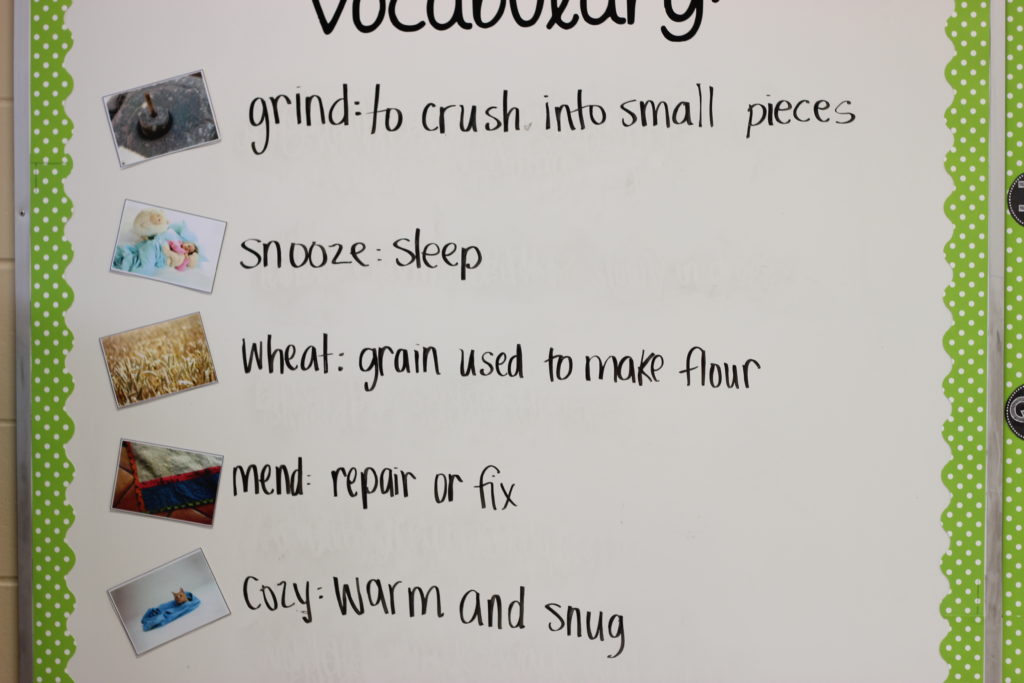 Vocabulary:
grind: to crush into small pieces
snooze: sleep
wheat: grain used to make flour
mend: repair or fix
Cozy: warm and snug
G